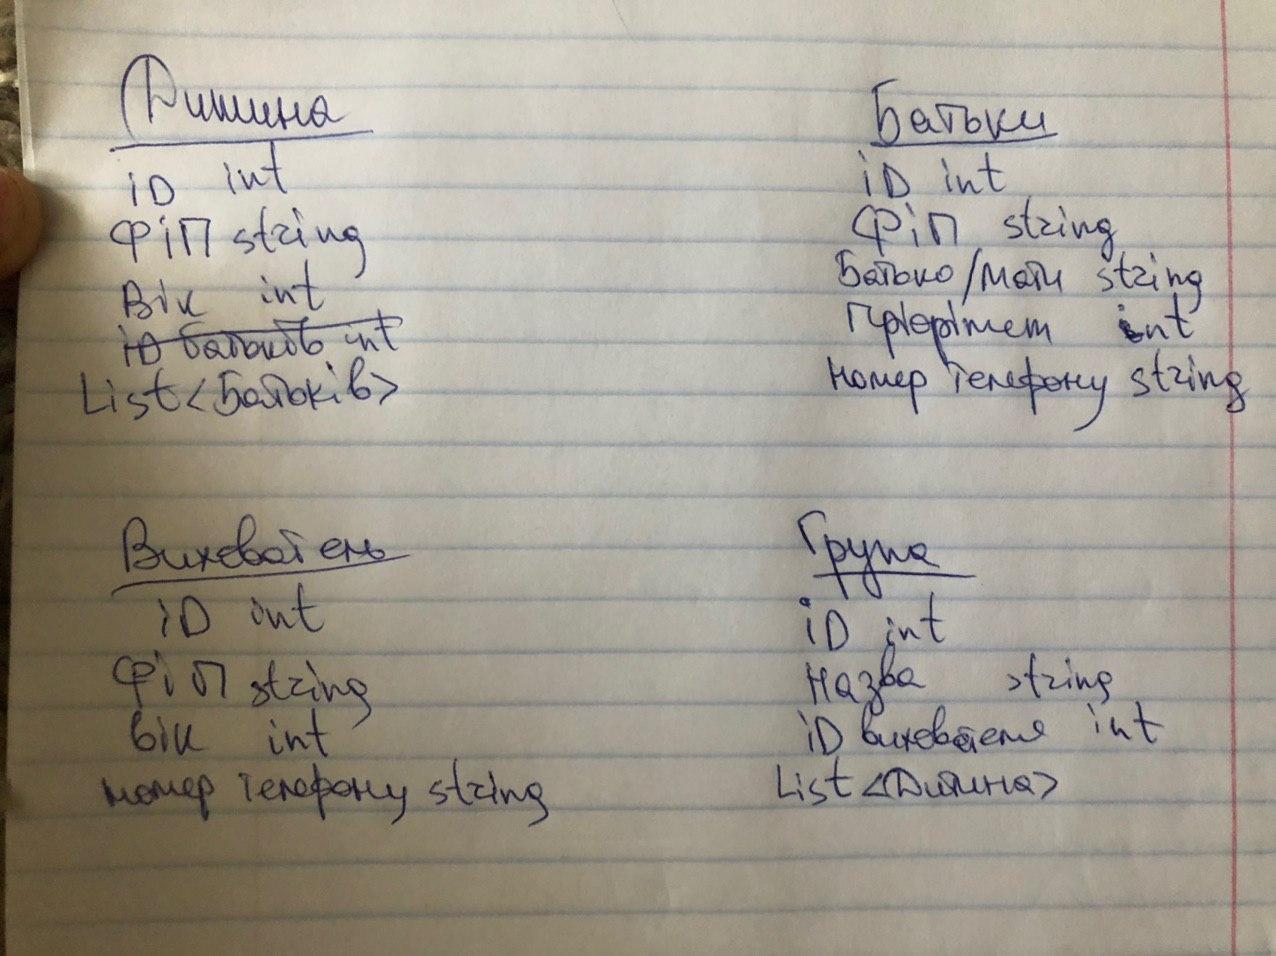 Дитина
iD int
ФіП string
Вік int
iD батьків int
List<Батьків>
Батьки
iD int
ФіП string
Батько/Мати string
Пріорітет int
номер телефону string
Вихователь
iD int
ФіП string
вік int
номер телефону string
Група
iD int
Назва string
iD вихователя int
List<Дитина>